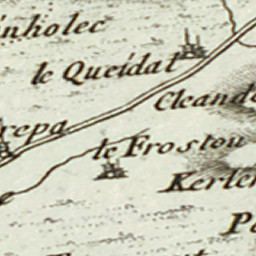 inholec
le Queidat
Cleand
repa
le Frostou
Kerle